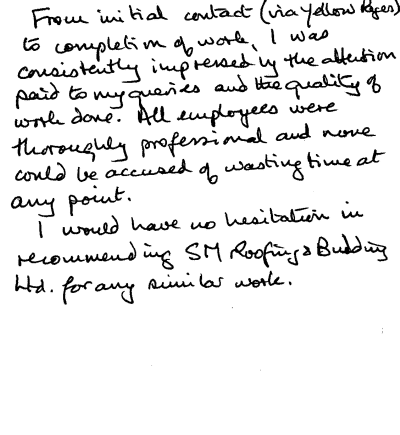 From initial contact (via Yellow Pages)
to completion of work, I was
consistently impressed by the attention
paid to my queries and the quality of
work done. All employees were
thoroughly professional and none
could be accused of wasting time at
any point.
I would have no hesitation in
recommending SM Roofing & Building
Ltd. for any similar work.